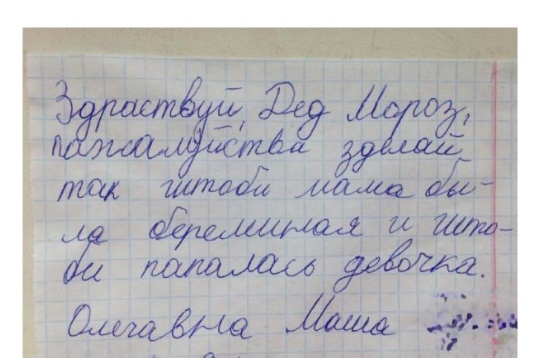 Здраствуй, Дед Мороз,
пажалуйства зделай
так штоби мама бы-
ла береминая и што-
би папалась девочка.
Олегавна Маша